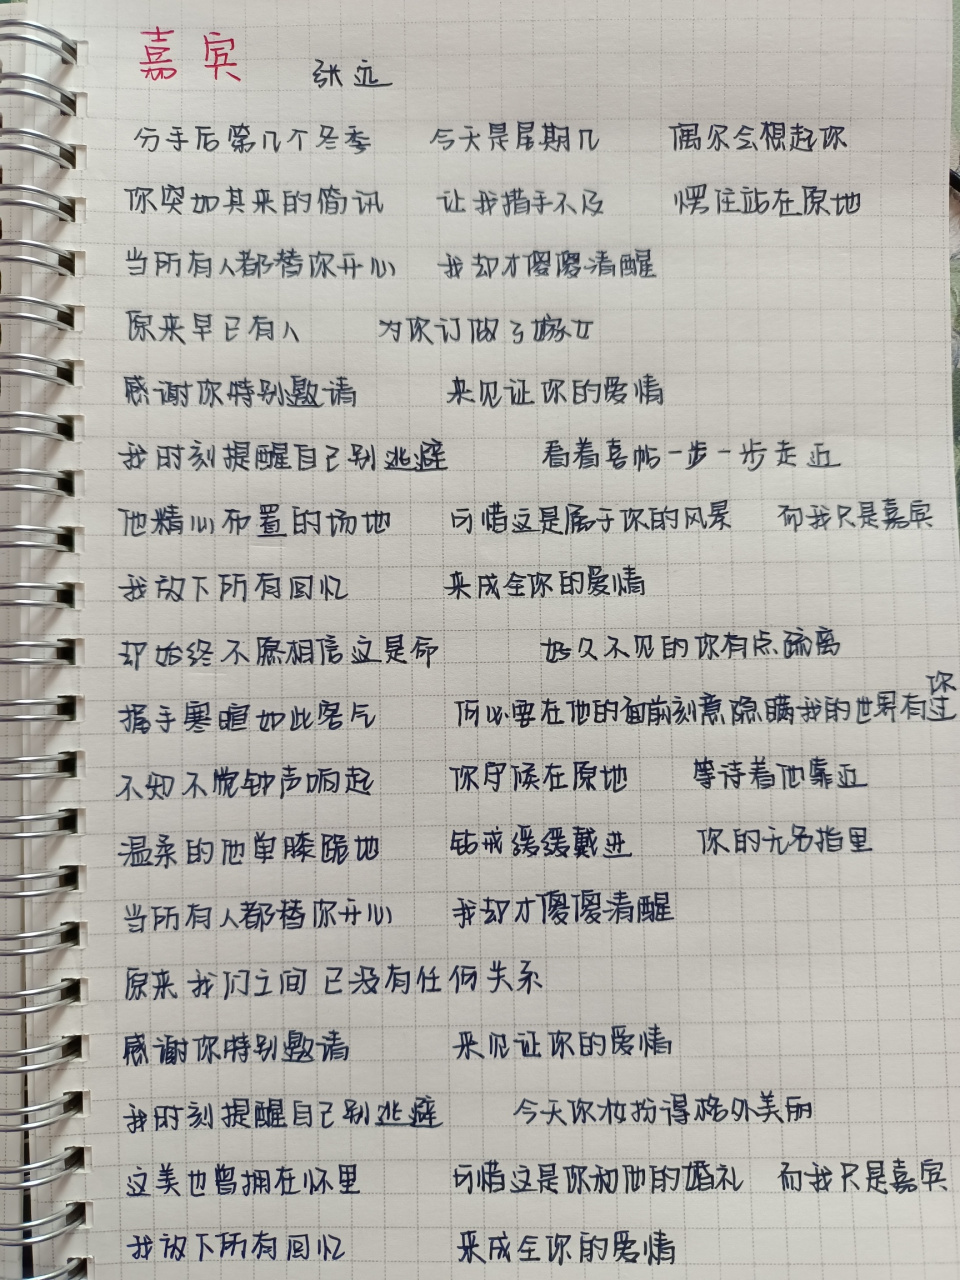 嘉宾 张远
分手后第几个冬季 今天是星期几 偶尔会想起你
你突如其来的简讯 让我措手不及 愣住站在原地
当所有人都替你开心 我却才傻傻清醒
原来早已有人 为你订做了嫁衣
感谢你特别邀请 来见证你的爱情
我时刻提醒自己别逃避 看着喜帖一步一步走近
他精心布置的场地 可惜这是属于你的风景 而我只是嘉宾
我放下所有回忆 来成全你的爱情
却始终不愿相信这是命 好久不见的你有点疏离
握手寒暄如此客气 何必要在他的面前刻意隐瞒我的世界有你过
不知不觉钟声响起 你守候在原地 等待着他靠近
温柔的他单膝跪地 钻戒缓缓戴进 你的无名指里
当所有人都替你开心 我却才傻傻清醒
原来我们之间已没有任何关系
感谢你特别邀请 来见证你的爱情
我时刻提醒自己别逃避 今天你妆扮得格外美丽
这美也曾拥在怀里 可惜这是你和他的婚礼 而我只是嘉宾
我放下所有回忆 来成全你的爱情